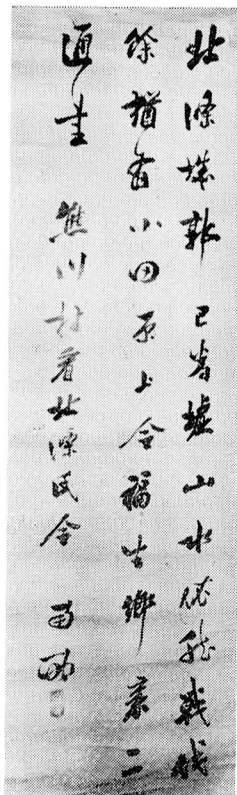 北條城郭已為墟山水依然戰伐
餘猶有小田原上令福生鄉裏二
通書 熊川村看北條氏令